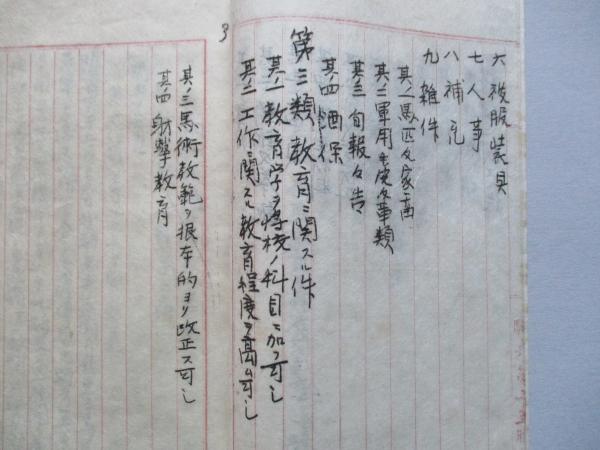 六 被服装具
七 人事
八 補充
九 雑件
其ノ一 馬匹及家畜
其ノ二 軍用毛皮及革類
其ノ三 旬報及告
其ノ四 酒保
第三類 教育ニ関スル件
其ノ一 教育学ヲ将校ノ科目ニ加フ可シ
其ノ二 工作ニ関スル教育程度ヲ高ム可シ
3
其ノ三 馬術教範ヲ根本的ヨリ改正ス可シ
其ノ四 射撃教育